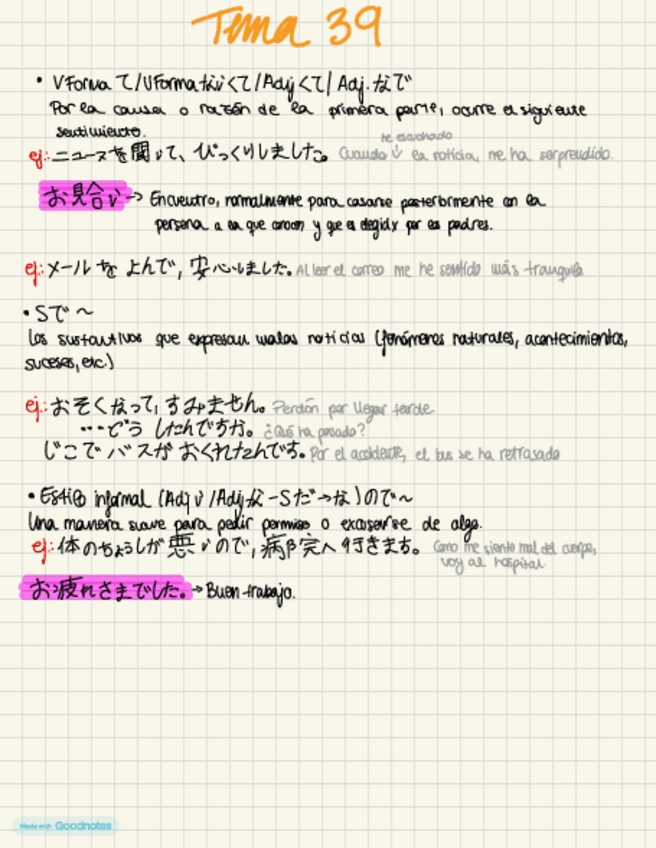 Tema 39
• VForma て/VForma ないくて/Adj くて/ Adj. なで
Por la causa o razón de la primera parte, ocurre el siguiente
sentimiento.
he escuchado
ej: ニュースを聞いて、びっくりしました。 Cuando la noticia, me ha sorprendido.
お見合い → Encuentro, normalmente para casarse posteriormente con la
persona a la que conocen y que es elegidx por los padres.
ej: メールをよんで, 安心しました。 Al leer el correo me he sentido más tranquila
• Sで ~
Los sustantivos que expresan malas noticias (fenómenos naturales, acontecimientos,
sucesos, etc.)
ej: おそくなって, すみません。 Perdón por llegar tarde
…どう したんですか。 ¿Qué ha pasado?
じこで バスが おくれたんです。 Por el accidente, el bus se ha retrasado
• Estilo informal (Adj い /Adj な -Sだ→な) ので~
Una manera suave para pedir permiso o excusarse de algo.
ej: 体のちょうしが 悪いので, 病院へ 行きます。 Como me siente mal del cuerpo,
voy al hospital.
お疲れさまでした。 → Buen trabajo.
Made with Goodnotes